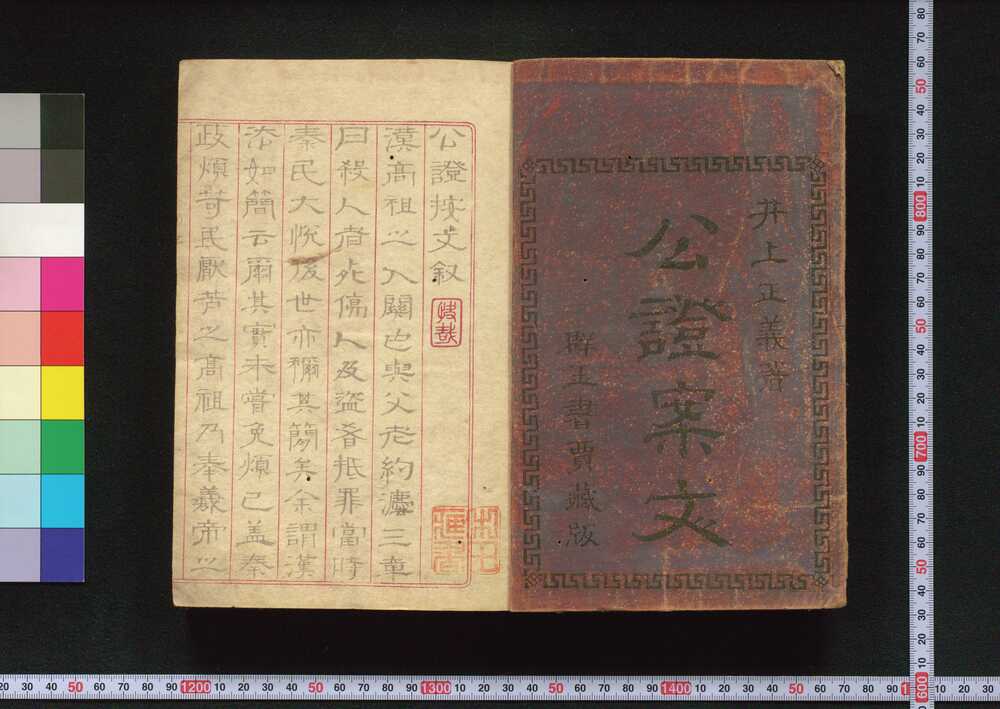 井上正義著
公證案文
群玉書賈藏版
公證按文叙
漢高祖之入關也與父老約灋三章
曰殺人者死傷人及盜者抵罪當時
秦民大悅後世亦稱其簡矣余謂漢
法如簡云爾其實未嘗免煩已蓋奉
政煩苛民厭苦之高祖乃奉義帝之
80 70 60 50 40 30 20 10 800 90 80 70 60 50 40 30 20 10 700 90 80 70 60 50 40 30 20 10 600
20 30 40 50 60 70 80 90 1200 10 20 30 40 50 60 70 80 90 1300 10 20 30 40 50 60 70 80 90 1400 10 20 30 40 50 60 70 80 90 10 20 30